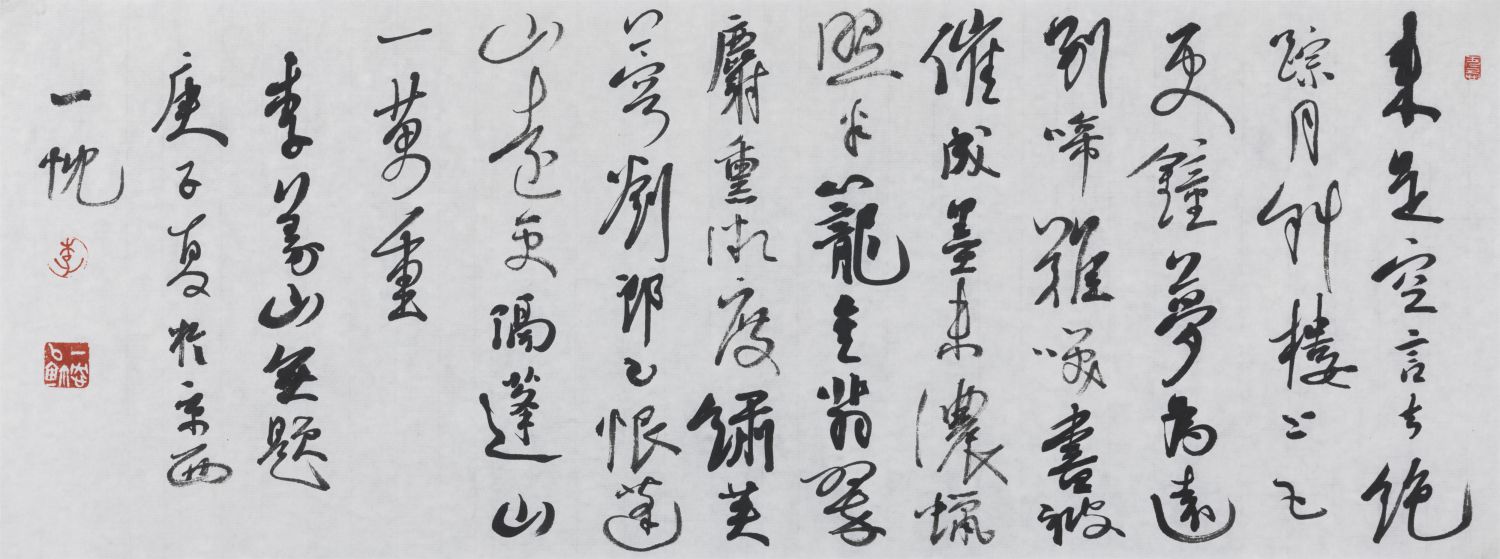 来是空言去絶
踪月斜楼上五
更鐘夢為遠
别啼難唤書被
催成墨未濃蠟
照半籠金翡翠
麝熏微度繡芙
蓉劉郎已恨蓬
山遠更隔蓬山
一萬重
李義山無題
庚子夏於京西
一忱
李